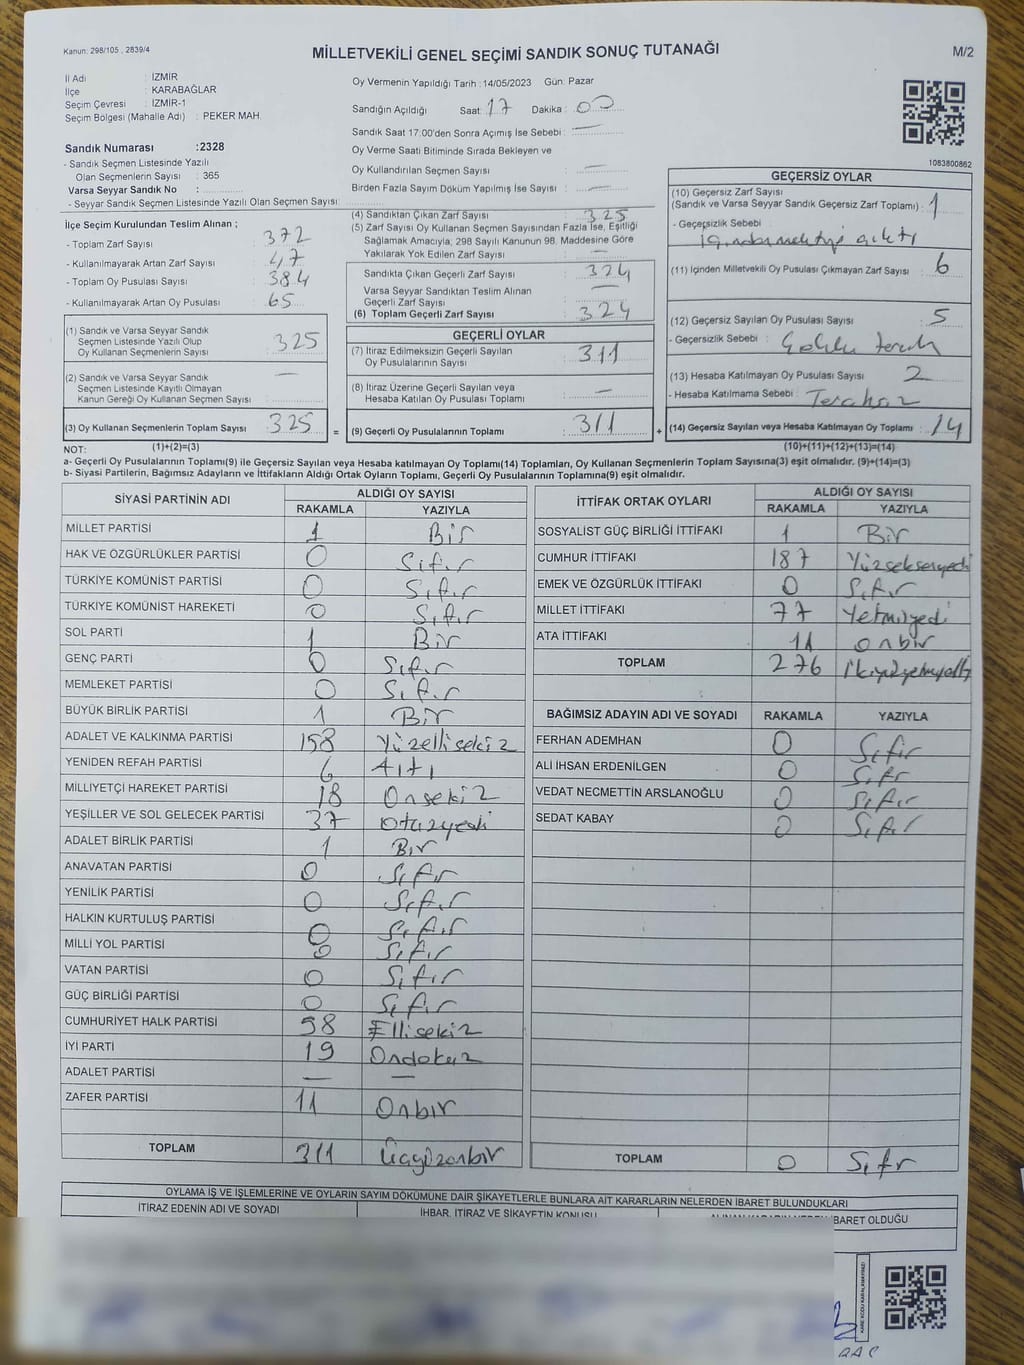 Kanun: 298/105 , 2839/4
MİLLETVEKİLİ GENEL SEÇİMİ SANDIK SONUÇ TUTANAĞI
M/2
İl Adı : İZMİR
İlçe : KARABAĞLAR
Seçim Çevresi : İZMİR-1
Seçim Bölgesi (Mahalle Adı) : PEKER MAH.
Sandık Numarası :2328
- Sandık Seçmen Listesinde Yazılı
Olan Seçmenlerin Sayısı : 365
Varsa Seyyar Sandık No :
- Seyyar Sandık Seçmen Listesinde Yazılı Olan Seçmen Sayısı:
Oy Vermenin Yapıldığı Tarih :14/05/2023 Gün: Pazar
Sandığın Açıldığı Saat: 17 Dakika : 00
Sandık Saat 17:00'den Sonra Açımış İse Sebebi : —
Oy Verme Saati Bitiminde Sırada Bekleyen ve
Oy Kullandırılan Seçmen Sayısı : —
Birden Fazla Sayım Döküm Yapılmış İse Sayısı : —
1083800862
İlçe Seçim Kurulundan Teslim Alınan ;
- Toplam Zarf Sayısı : 372
- Kullanılmayarak Artan Zarf Sayısı : 47
- Toplam Oy Pusulası Sayısı : 384
- Kullanılmayarak Artan Oy Pusulası : 65
(1) Sandık ve Varsa Seyyar Sandık
Seçmen Listesinde Yazılı Olup
Oy Kullanan Seçmenlerin Sayısı : 325
(2) Sandık ve Varsa Seyyar Sandık
Seçmen Listesinde Kayıtlı Olmayan
Kanun Gereği Oy Kullanan Seçmen Sayısı : —
(3) Oy Kullanan Seçmenlerin Toplam Sayısı : 325
(4) Sandıktan Çıkan Zarf Sayısı : 325
(5) Zarf Sayısı Oy Kullanan Seçmen Sayısından Fazla İse, Eşitliği
Sağlamak Amacıyla, 298 Sayılı Kanunun 98. Maddesine Göre
Yakılarak Yok Edilen Zarf Sayısı : —
Sandıkta Çıkan Geçerli Zarf Sayısı : 324
Varsa Seyyar Sandıktan Teslim Alınan
Geçerli Zarf Sayısı : —
(6) Toplam Geçerli Zarf Sayısı : 324
GEÇERLİ OYLAR
(7) İtiraz Edilmeksizin Geçerli Sayılan
Oy Pusulalarının Sayısı : 311
(8) İtiraz Üzerine Geçerli Sayılan veya
Hesaba Katılan Oy Pusulası Toplamı : —
= (9) Geçerli Oy Pusulalarının Toplamı : 311
GEÇERSİZ OYLAR
(10) Geçersiz Zarf Sayısı
(Sandık ve Varsa Seyyar Sandık Geçersiz Zarf Toplamı) : 1
- Geçersizlik Sebebi :
(11) İçinden Milletvekili Oy Pusulası Çıkmayan Zarf Sayısı : 6
(12) Geçersiz Sayılan Oy Pusulası Sayısı : 5
- Geçersizlik Sebebi : Çoklu tercih
(13) Hesaba Katılmayan Oy Pusulası Sayısı : 2
- Hesaba Katılmama Sebebi : Tercihsiz
+ (14) Geçersiz Sayılan veya Hesaba Katılmayan Oy Toplamı : 14
NOT: (1)+(2)=(3) (10)+(11)+(12)+(13)=(14)
a- Geçerli Oy Pusulalarının Toplamı(9) ile Geçersiz Sayılan veya Hesaba katılmayan Oy Toplamı(14) Toplamları, Oy Kullanan Seçmenlerin Toplam Sayısına(3) eşit olmalıdır. (9)+(14)=(3)
b- Siyasi Partilerin, Bağımsız Adayların ve İttifakların Aldığı Ortak Oyların Toplamı, Geçerli Oy Pusulalarının Toplamına(9) eşit olmalıdır.
SİYASİ PARTİNİN ADI ALDIĞI OY SAYISI
RAKAMLA YAZIYLA
MİLLET PARTİSİ 1 Bir
HAK VE ÖZGÜRLÜKLER PARTİSİ 0 Sıfır
TÜRKİYE KOMÜNİST PARTİSİ 0 Sıfır
TÜRKİYE KOMÜNİST HAREKETİ 0 Sıfır
SOL PARTİ 1 Bir
GENÇ PARTİ 0 Sıfır
MEMLEKET PARTİSİ 0 Sıfır
BÜYÜK BİRLİK PARTİSİ 1 Bir
ADALET VE KALKINMA PARTİSİ 158 Yüzellisekiz
YENİDEN REFAH PARTİSİ 6 Altı
MİLLİYETÇİ HAREKET PARTİSİ 18 Onsekiz
YEŞİLLER VE SOL GELECEK PARTİSİ 37 Otuzyedi
ADALET BİRLİK PARTİSİ 1 Bir
ANAVATAN PARTİSİ 0 Sıfır
YENİLİK PARTİSİ 0 Sıfır
HALKIN KURTULUŞ PARTİSİ 0 Sıfır
MİLLİ YOL PARTİSİ 0 Sıfır
VATAN PARTİSİ 0 Sıfır
GÜÇ BİRLİĞİ PARTİSİ 0 Sıfır
CUMHURİYET HALK PARTİSİ 58 Ellisekiz
İYİ PARTİ 19 Ondokuz
ADALET PARTİSİ — —
ZAFER PARTİSİ 11 Onbir
TOPLAM 311 Üçyüzonbir
İTTİFAK ORTAK OYLARI ALDIĞI OY SAYISI
RAKAMLA YAZIYLA
SOSYALİST GÜÇ BİRLİĞİ İTTİFAKI 1 Bir
CUMHUR İTTİFAKI 187 Yüzseksenyedi
EMEK VE ÖZGÜRLÜK İTTİFAKI 0 Sıfır
MİLLET İTTİFAKI 77 Yetmişyedi
ATA İTTİFAKI 11 onbir
TOPLAM 276 İkiyüzyetmişaltı
BAĞIMSIZ ADAYIN ADI VE SOYADI RAKAMLA YAZIYLA
FERHAN ADEMHAN 0 Sıfır
ALİ İHSAN ERDENİLGEN 0 Sıfır
VEDAT NECMETTİN ARSLANOĞLU 0 Sıfır
SEDAT KABAY 0 Sıfır
TOPLAM 0 Sıfır
OYLAMA İŞ VE İŞLEMLERİNE VE OYLARIN SAYIM DÖKÜMÜNE DAİR ŞİKAYETLERLE BUNLARA AİT KARARLARIN NELERDEN İBARET BULUNDUKLARI
İTİRAZ EDENİN ADI VE SOYADI İHBAR, İTİRAZ VE ŞİKAYETİN KONUSU İBARET OLDUĞU